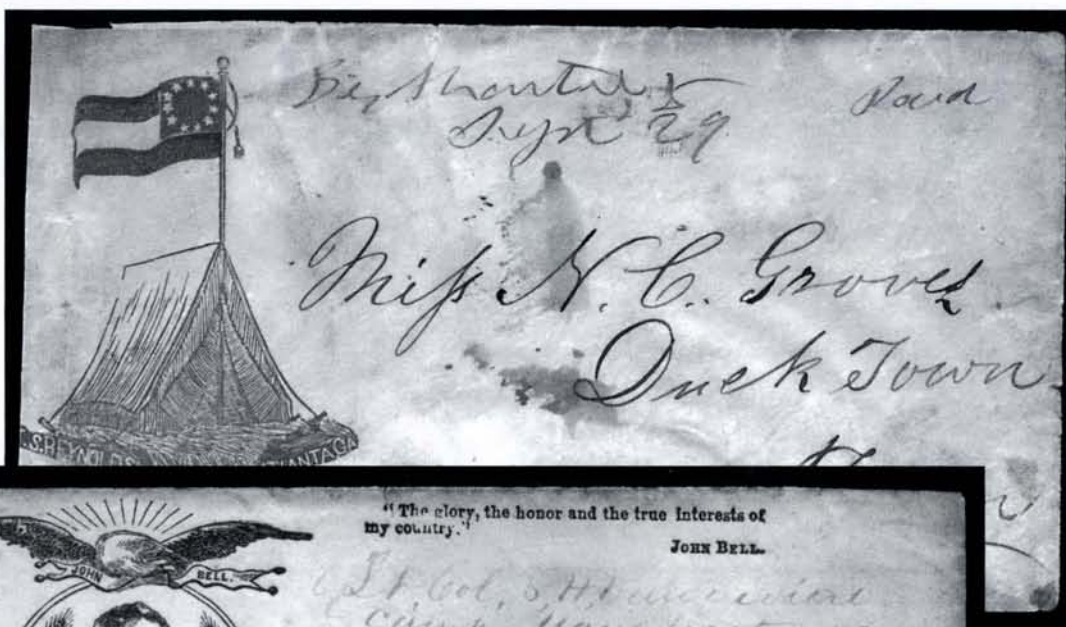 Big Shanty
Sept 29
Paid
Miss N. C. Groves
Duck Town
ATLANTA GA
"The glory, the honor and the true interests of
my country."
JOHN BELL.
JOHN BELL.
Lt. Col, S. H.
Camp